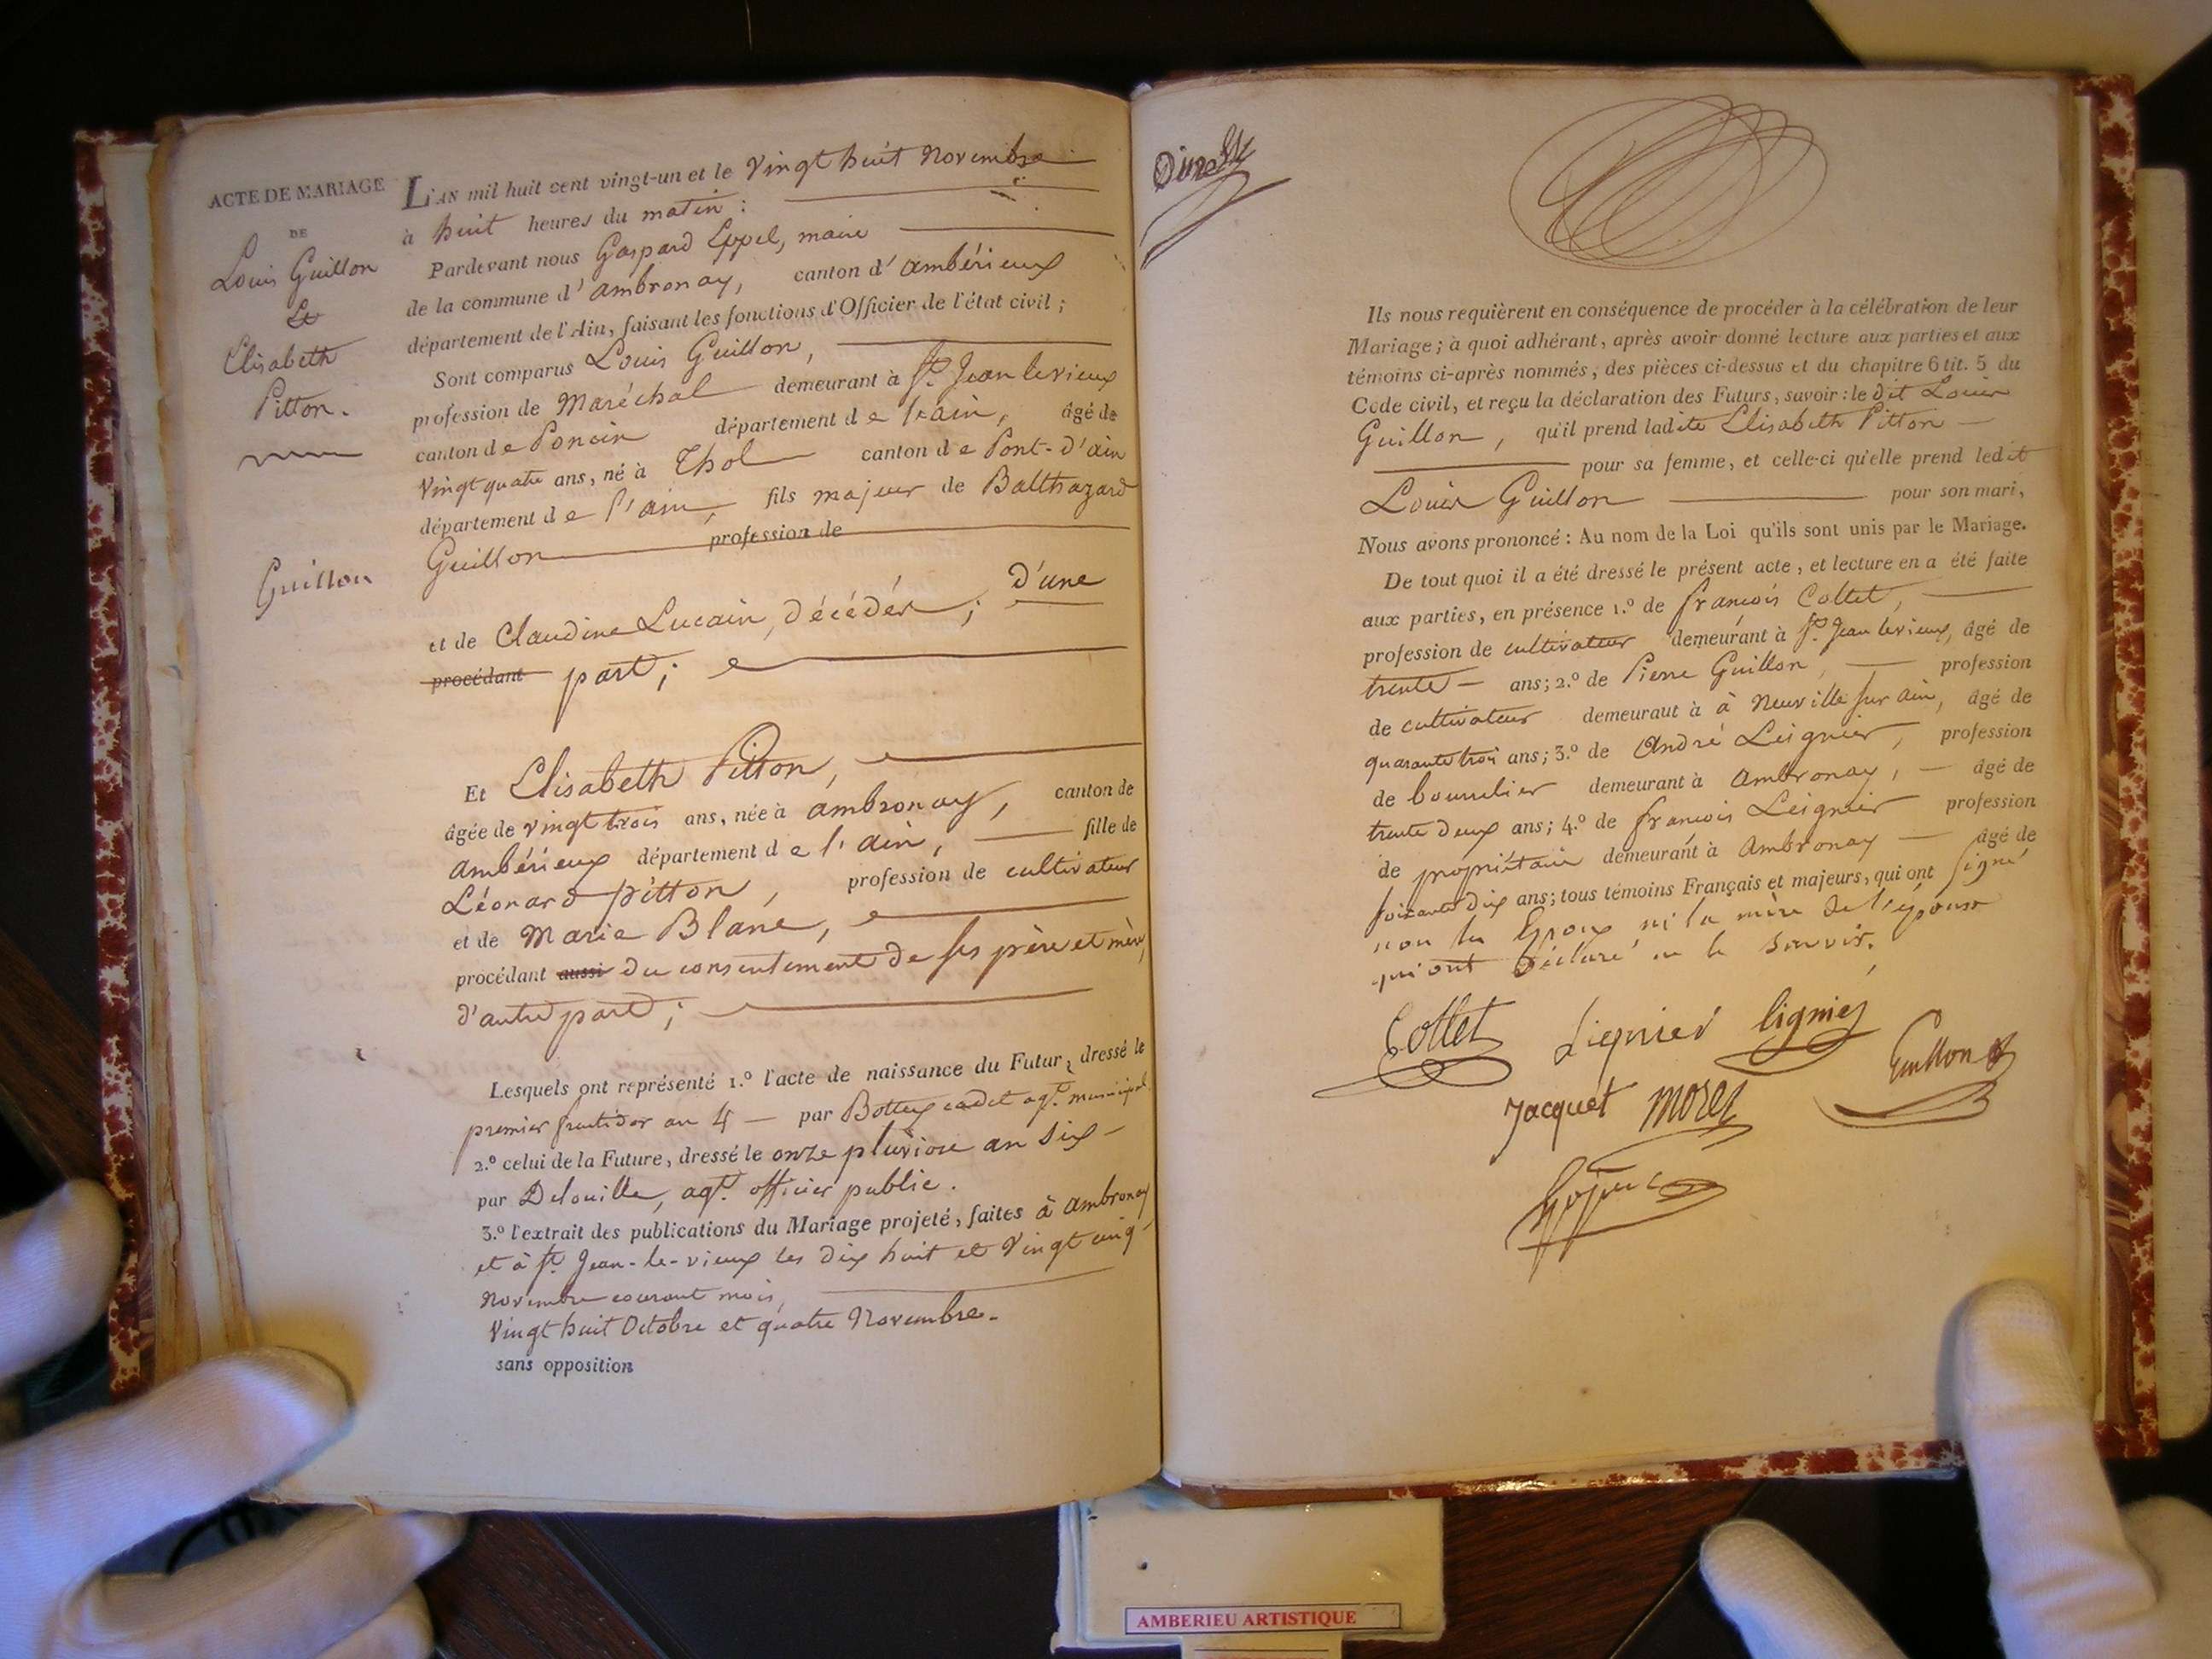 ACTE DE MARIAGE
DE
Louis Guillon
Et
Elisabeth
Pitton.
Guillon
L'AN mil huit cent vingt-un et le Vingt huit Novembre
à huit heures du matin :
Pardevant nous Gaspard Eppel, maire
de la commune d'ambronay, canton d'ambérieux
département de l'Ain, faisant les fonctions d'Officier de l'état civil ;
Sont comparus Louis Guillon,
profession de Maréchal demeurant à St. Jean le vieux
canton de Poncin département de l'ain, âgé de
Vingt quatre ans, né à Thol canton de Pont-d'ain
département de l'ain, fils majeur de Balthazard
Guillon profession de
et de Claudine Lucain, décédés ; d'une
procédant part ;
Et Elisabeth Pitton,
âgée de vingt trois ans, née à ambronay, canton de
ambérieux département de l'ain, fille de
Léonard pitton, profession de cultivateur
et de Marie Blanc,
procédant aussi du consentement de ses père et mère,
d'autre part ;
Lesquels ont représenté 1.º l'acte de naissance du Futur, dressé le
premier fructidor an 4 par Bottex cadet agt. municipal
2.º celui de la Future, dressé le onze pluviose an six
par Delouille, agt. officier public.
3.º l'extrait des publications du Mariage projeté, faites à ambronay
et à St. Jean-le-vieux les dix huit et Vingt cinq
Novembre courant mois,
Vingt huit Octobre et quatre Novembre.
sans opposition
Ils nous requièrent en conséquence de procéder à la célébration de leur
Mariage ; à quoi adhérant, après avoir donné lecture aux parties et aux
témoins ci-après nommés, des pièces ci-dessus et du chapitre 6 tit. 5 du
Code civil, et reçu la déclaration des Futurs, savoir : le dit Louis
Guillon, qu'il prend ladite Elisabeth Pitton
pour sa femme, et celle-ci qu'elle prend ledit
Louis Guillon pour son mari,
Nous avons prononcé : Au nom de la Loi qu'ils sont unis par le Mariage.
De tout quoi il a été dressé le présent acte, et lecture en a été faite
aux parties, en présence 1.º de françois Collet,
profession de cultivateur demeurant à St. Jean le vieux, âgé de
trente ans ; 2.º de Pierre Guillon, profession
de cultivateur demeurant à à Neuville sur ain, âgé de
quarante trois ans ; 3.º de André Leignier, profession
de bourrelier demeurant à Ambronay, âgé de
trente deux ans ; 4.º de françois Leignier profession
de propriétaire demeurant à Ambronay âgé de
soixante dix ans ; tous témoins Français et majeurs, qui ont signé
non les Epoux ni la mère de l'épouse
qui ont déclaré ne le savoir.
Collet Lignier lignier Guillon
Jacquet Morel
AMBERIEU ARTISTIQUE